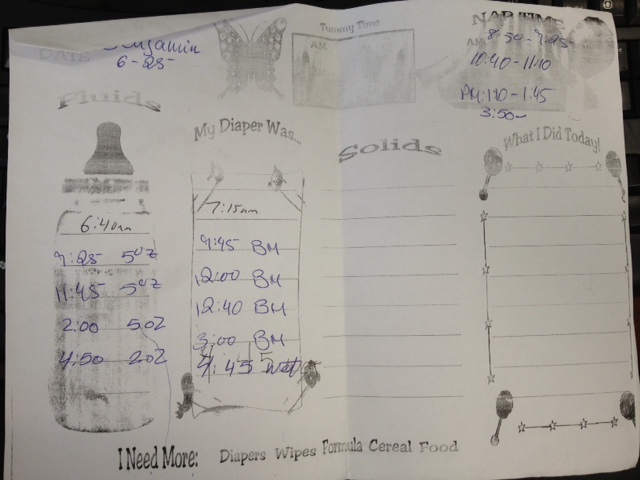 DATE Benjamin
6-25
Tummy Time
AM
NAP TIME
AM 8:50-9:25
10:40-11:10
PM: 1:10-1:45
3:50-
Fluids
6:40am
9:25 5oz
11:45 5oz
2:00 5oz
4:50 2oz
My Diaper Was...
7:15am
9:45 BM
12:00 BM
12:40 BM
3:00 BM
4:45 Wet
Solids
What I Did Today!
I Need More: Diapers Wipes Formula Cereal Food